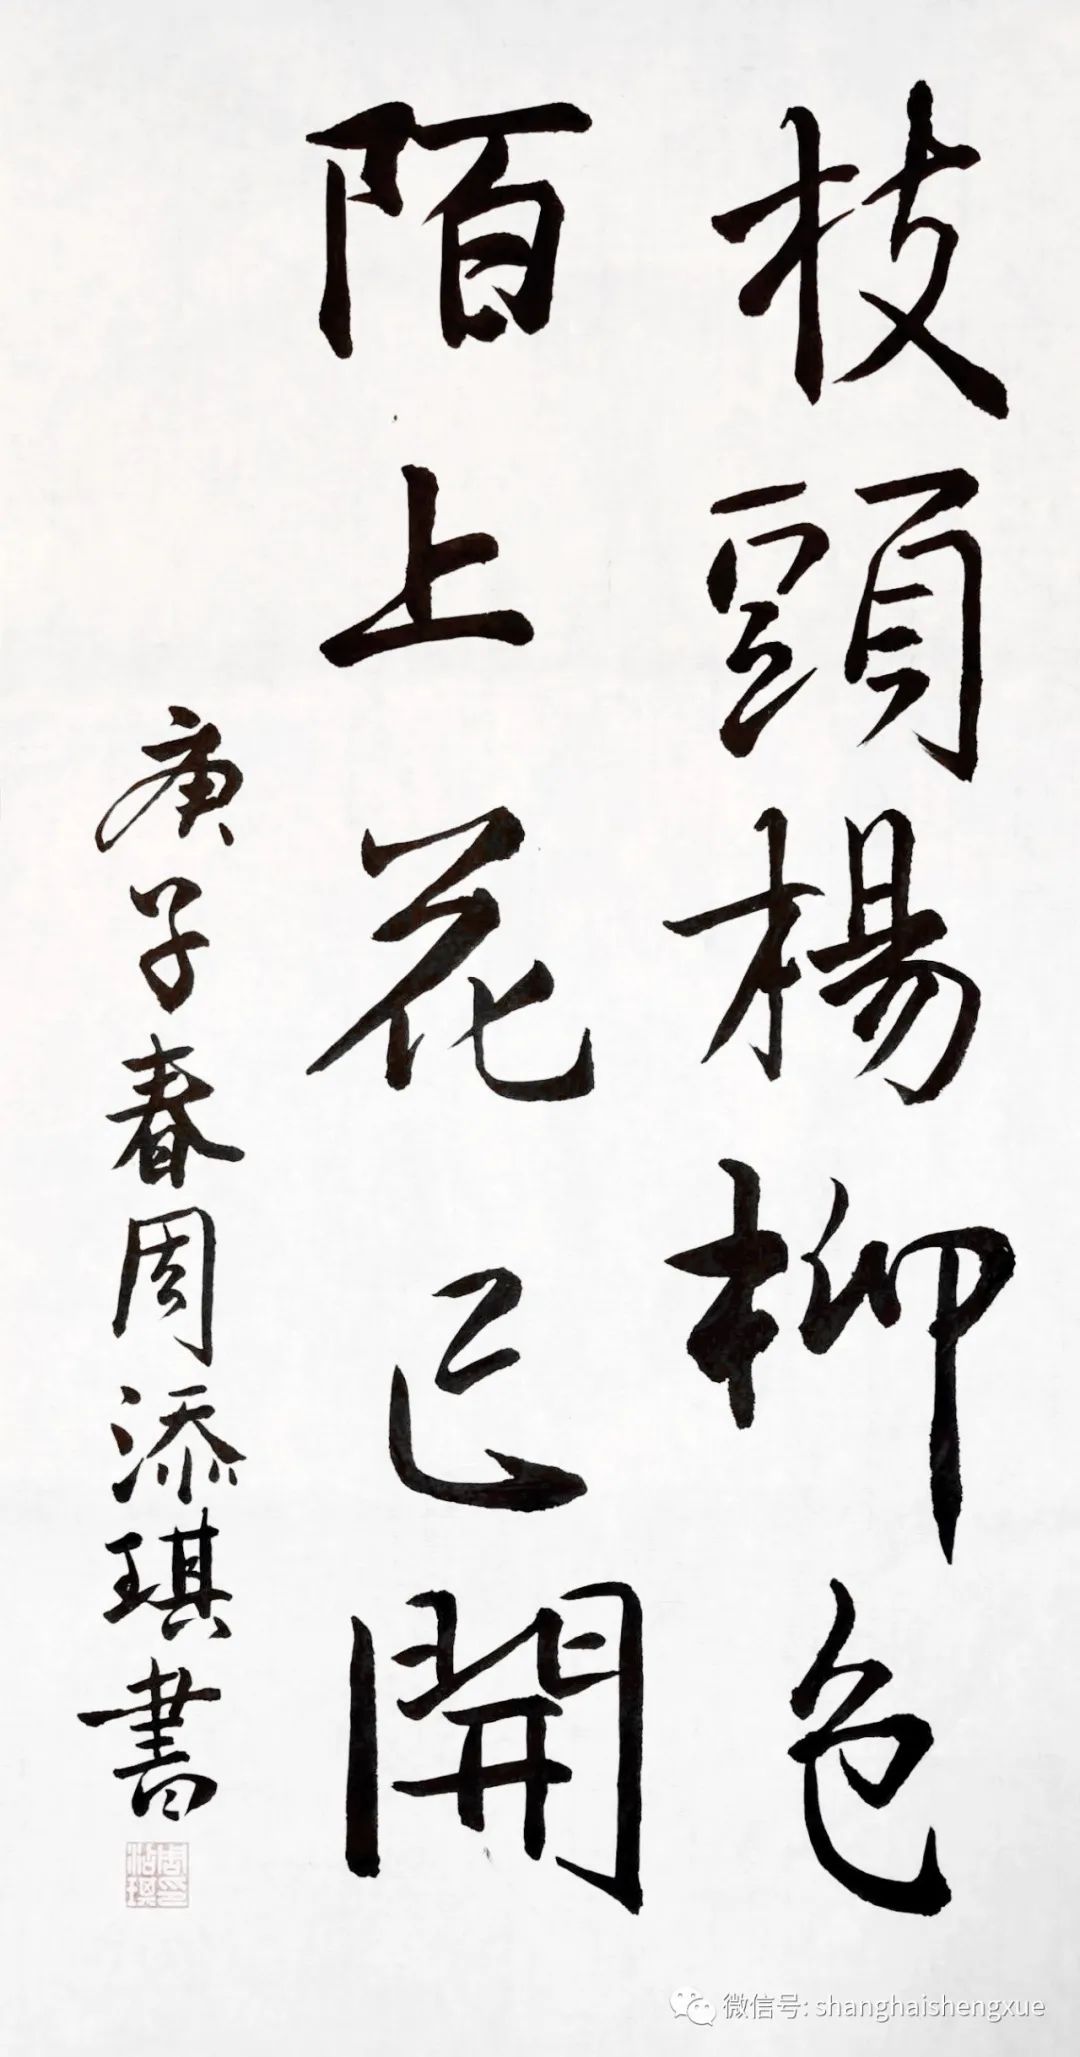 枝頭楊柳色
陌上花已開
庚子春周添琪書
微信号: shanghaishengxue